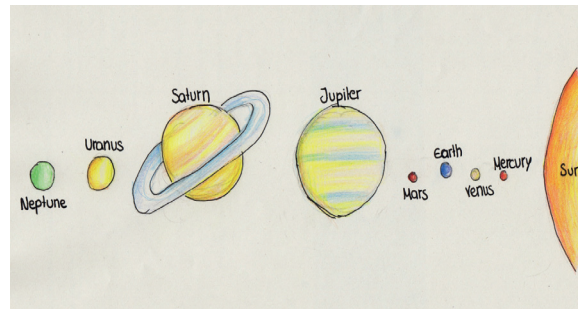 Neptune
Uranus
Saturn
Jupiler
Mars
Earth
Venus
Mercury
Sun